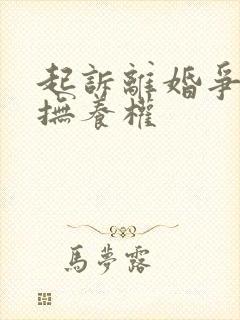 起訴離婚爭
撫養權
馬夢露